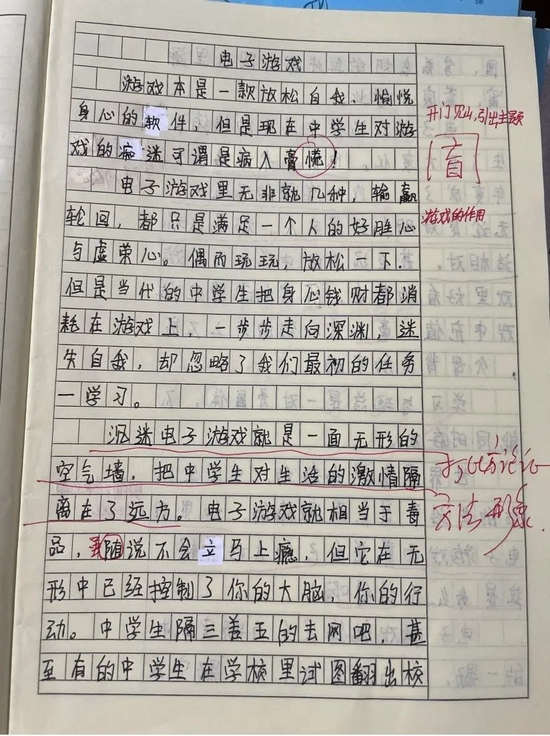 电子游戏
游戏本是一款放松自我、愉悦
身心的软件，但是现在中学生对游
戏的痴迷可谓是病入膏慌！
电子游戏里无非就几种，输赢
轮回，都只是满足一个人的好胜心
与虚荣心。偶而玩玩，放松一下.
但是当代的中学生把身心钱财都消
耗在游戏上，一步步走向深渊，迷
失自我，却忽略了我们最初的任务
一学习。
沉迷电子游戏就是一面无形的
空气墙，把中学生对生活的激情隔
离在了远方。电子游戏就相当于毒
品，随说不会立马上瘾，但它在无
形中已经控制了你的大脑，你的行
动。中学生隔三差五的去网吧，甚
至有的中学生在学校里试图翻出校
开门见山，引出主题
肓
游戏的作用
打比方论证
方法 形象